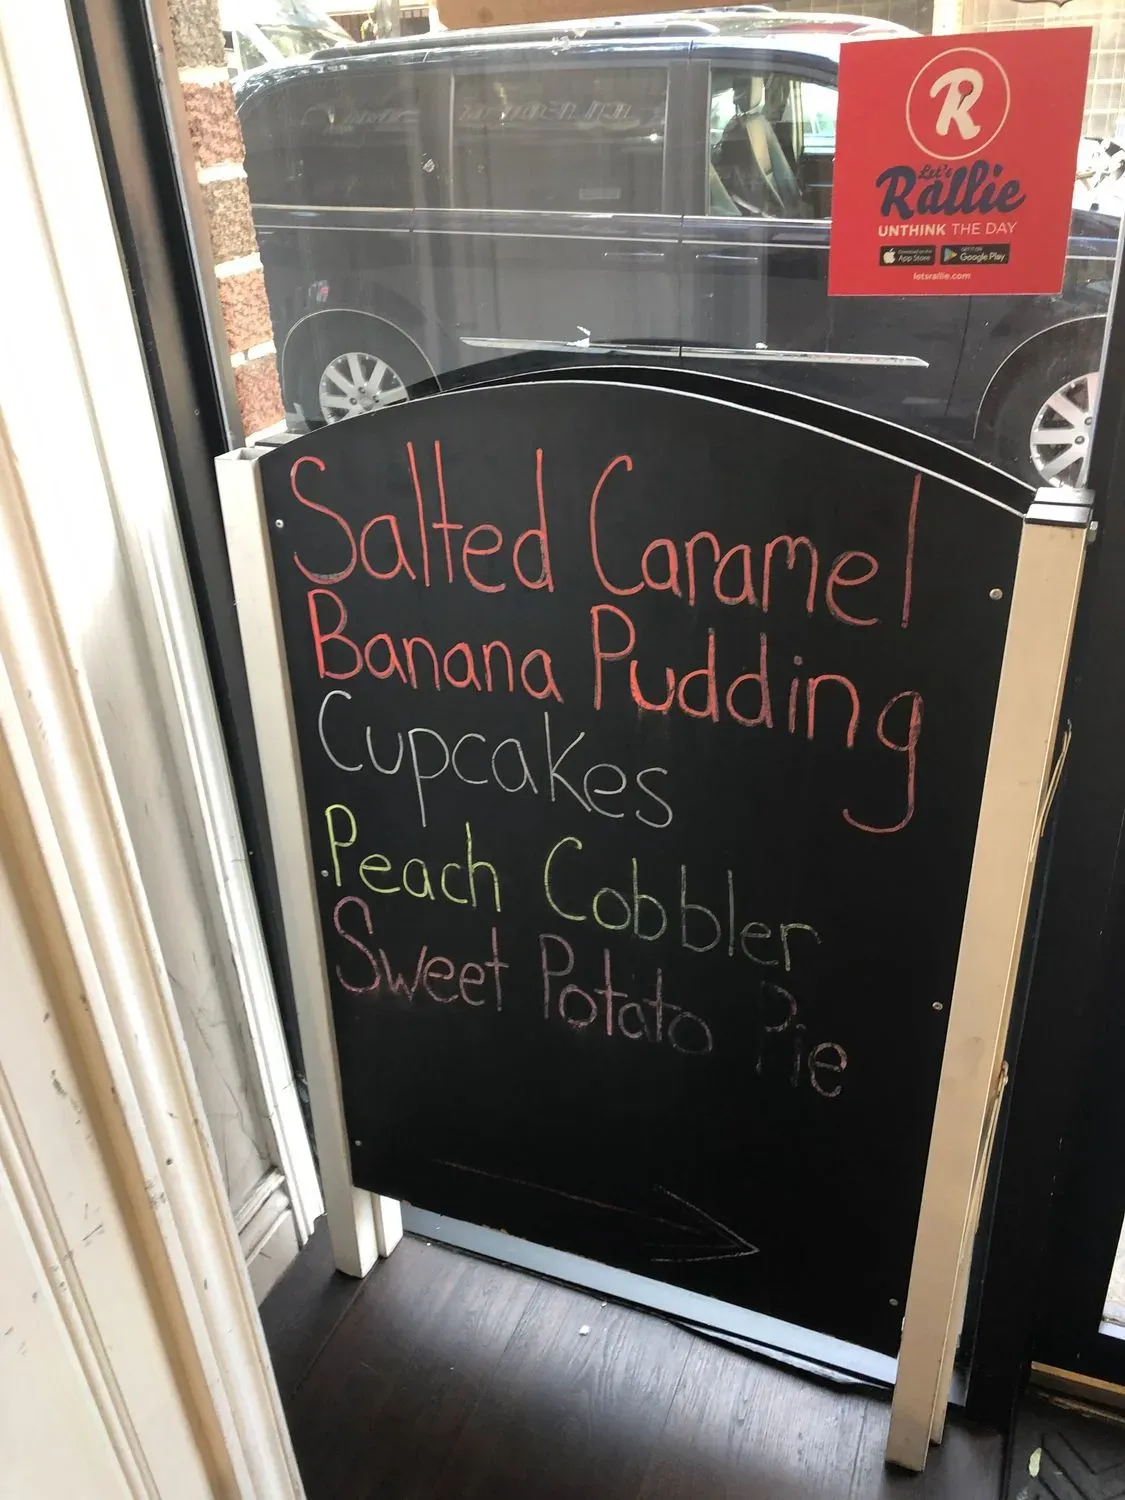 R
Let's
Rallie
UNTHINK THE DAY
Download on the App Store
GET IT ON Google Play
letsrallie.com
Salted Caramel
Banana Pudding
Cupcakes
Peach Cobbler
Sweet Potato Pie